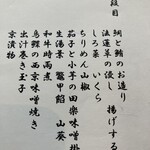 段目
鯛と鮪のお造り
法蓮草の優し　揚げする
しろ菜　いくら
ちりめん山椒
茄子と小芋の田楽味噌掛
生湯葉　鼈甲餡　山葵
和牛時雨煮
烏鰈の西京味噌焼き
出汁巻き玉子
京漬物